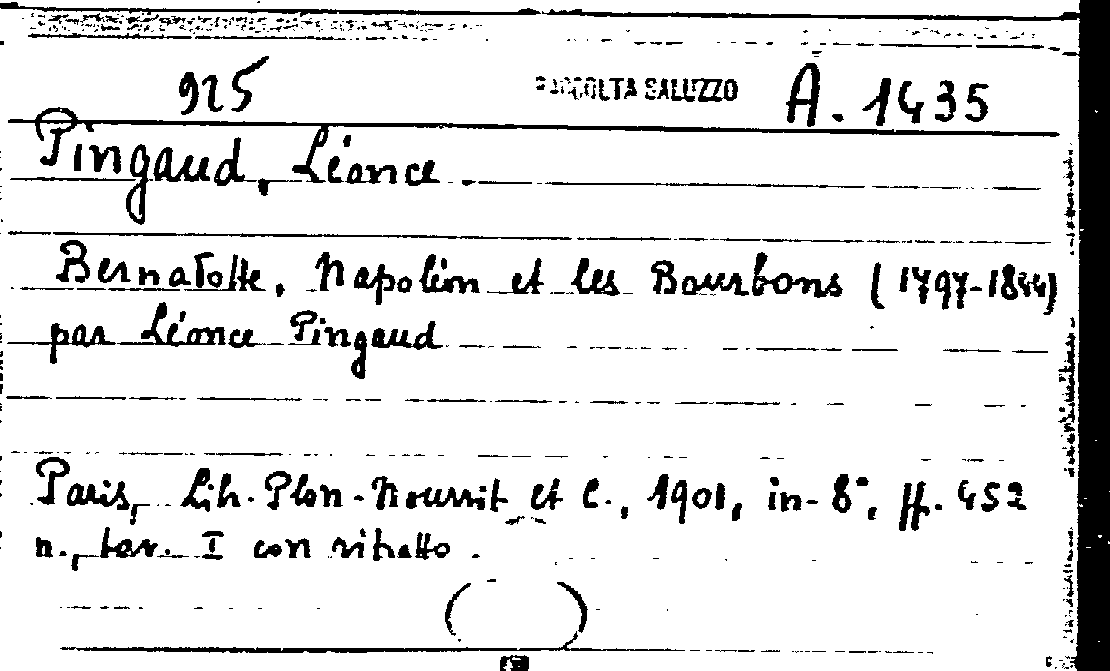 925 RACCOLTA SALUZZO A. 1435
Pingaud, Léonce.
Bernadotte, Napoléon et les Bourbons (1797-1844)
par Léonce Pingaud
Paris, Lib. Plon-Nourrit et C., 1901, in-8°, ff. 452
n., tav. I con ritratto.